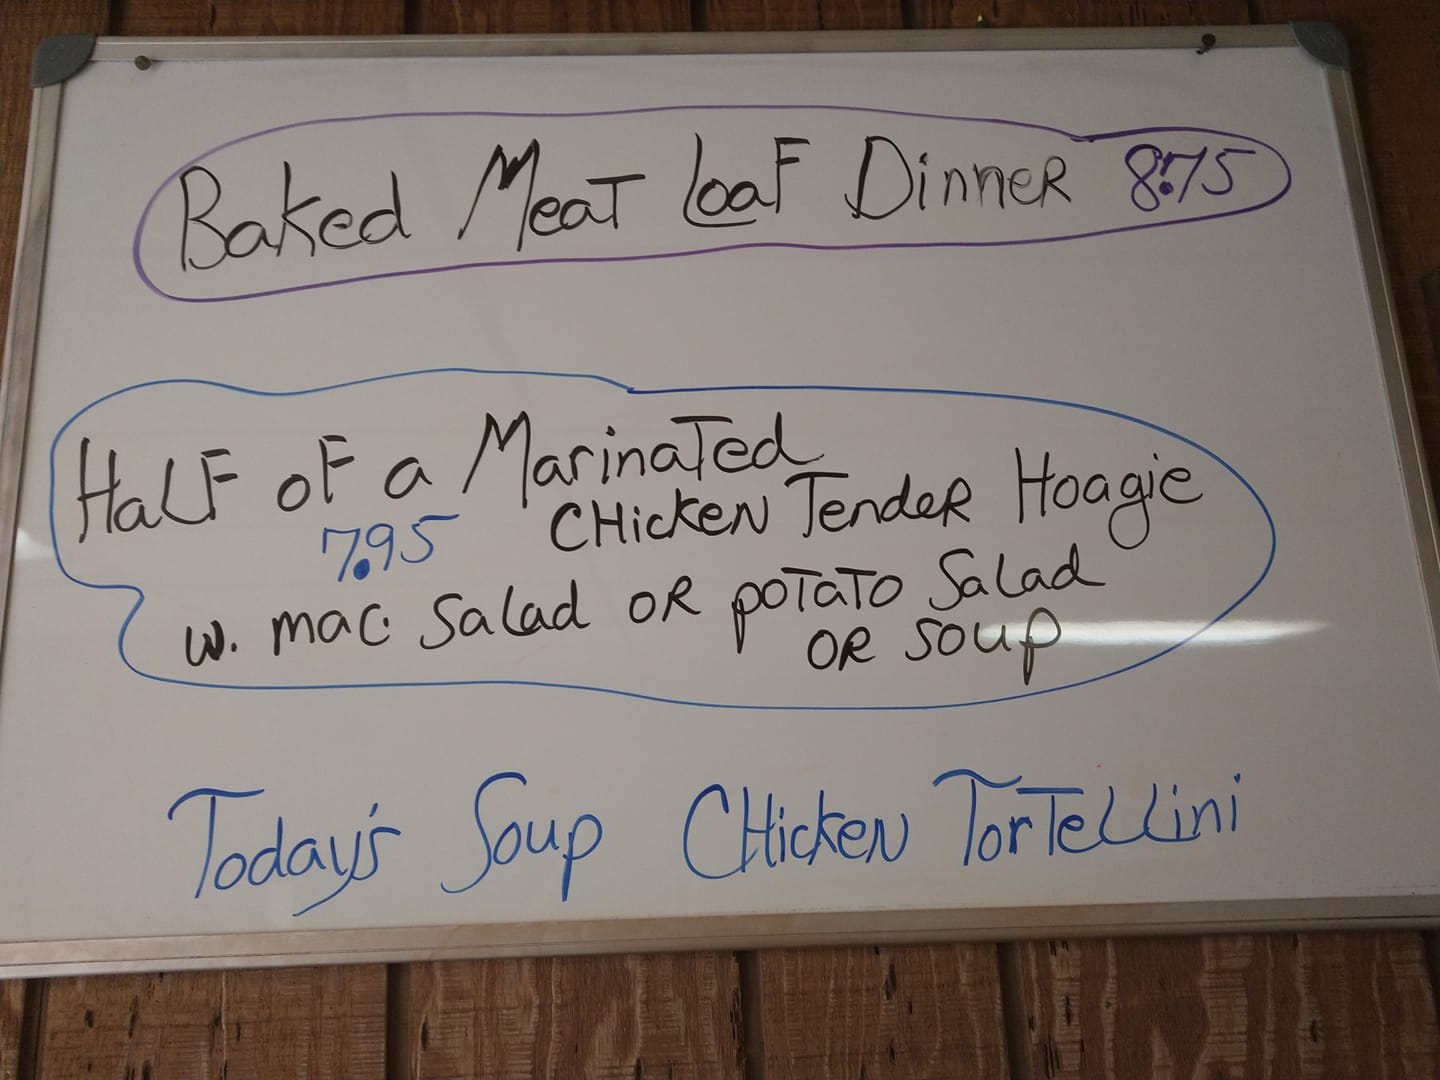 Baked Meat Loaf Dinner 8.75
Half of a Marinated
Chicken Tender Hoagie
7.95
w. mac salad or potato salad
or soup
Today's Soup Chicken Tortellini